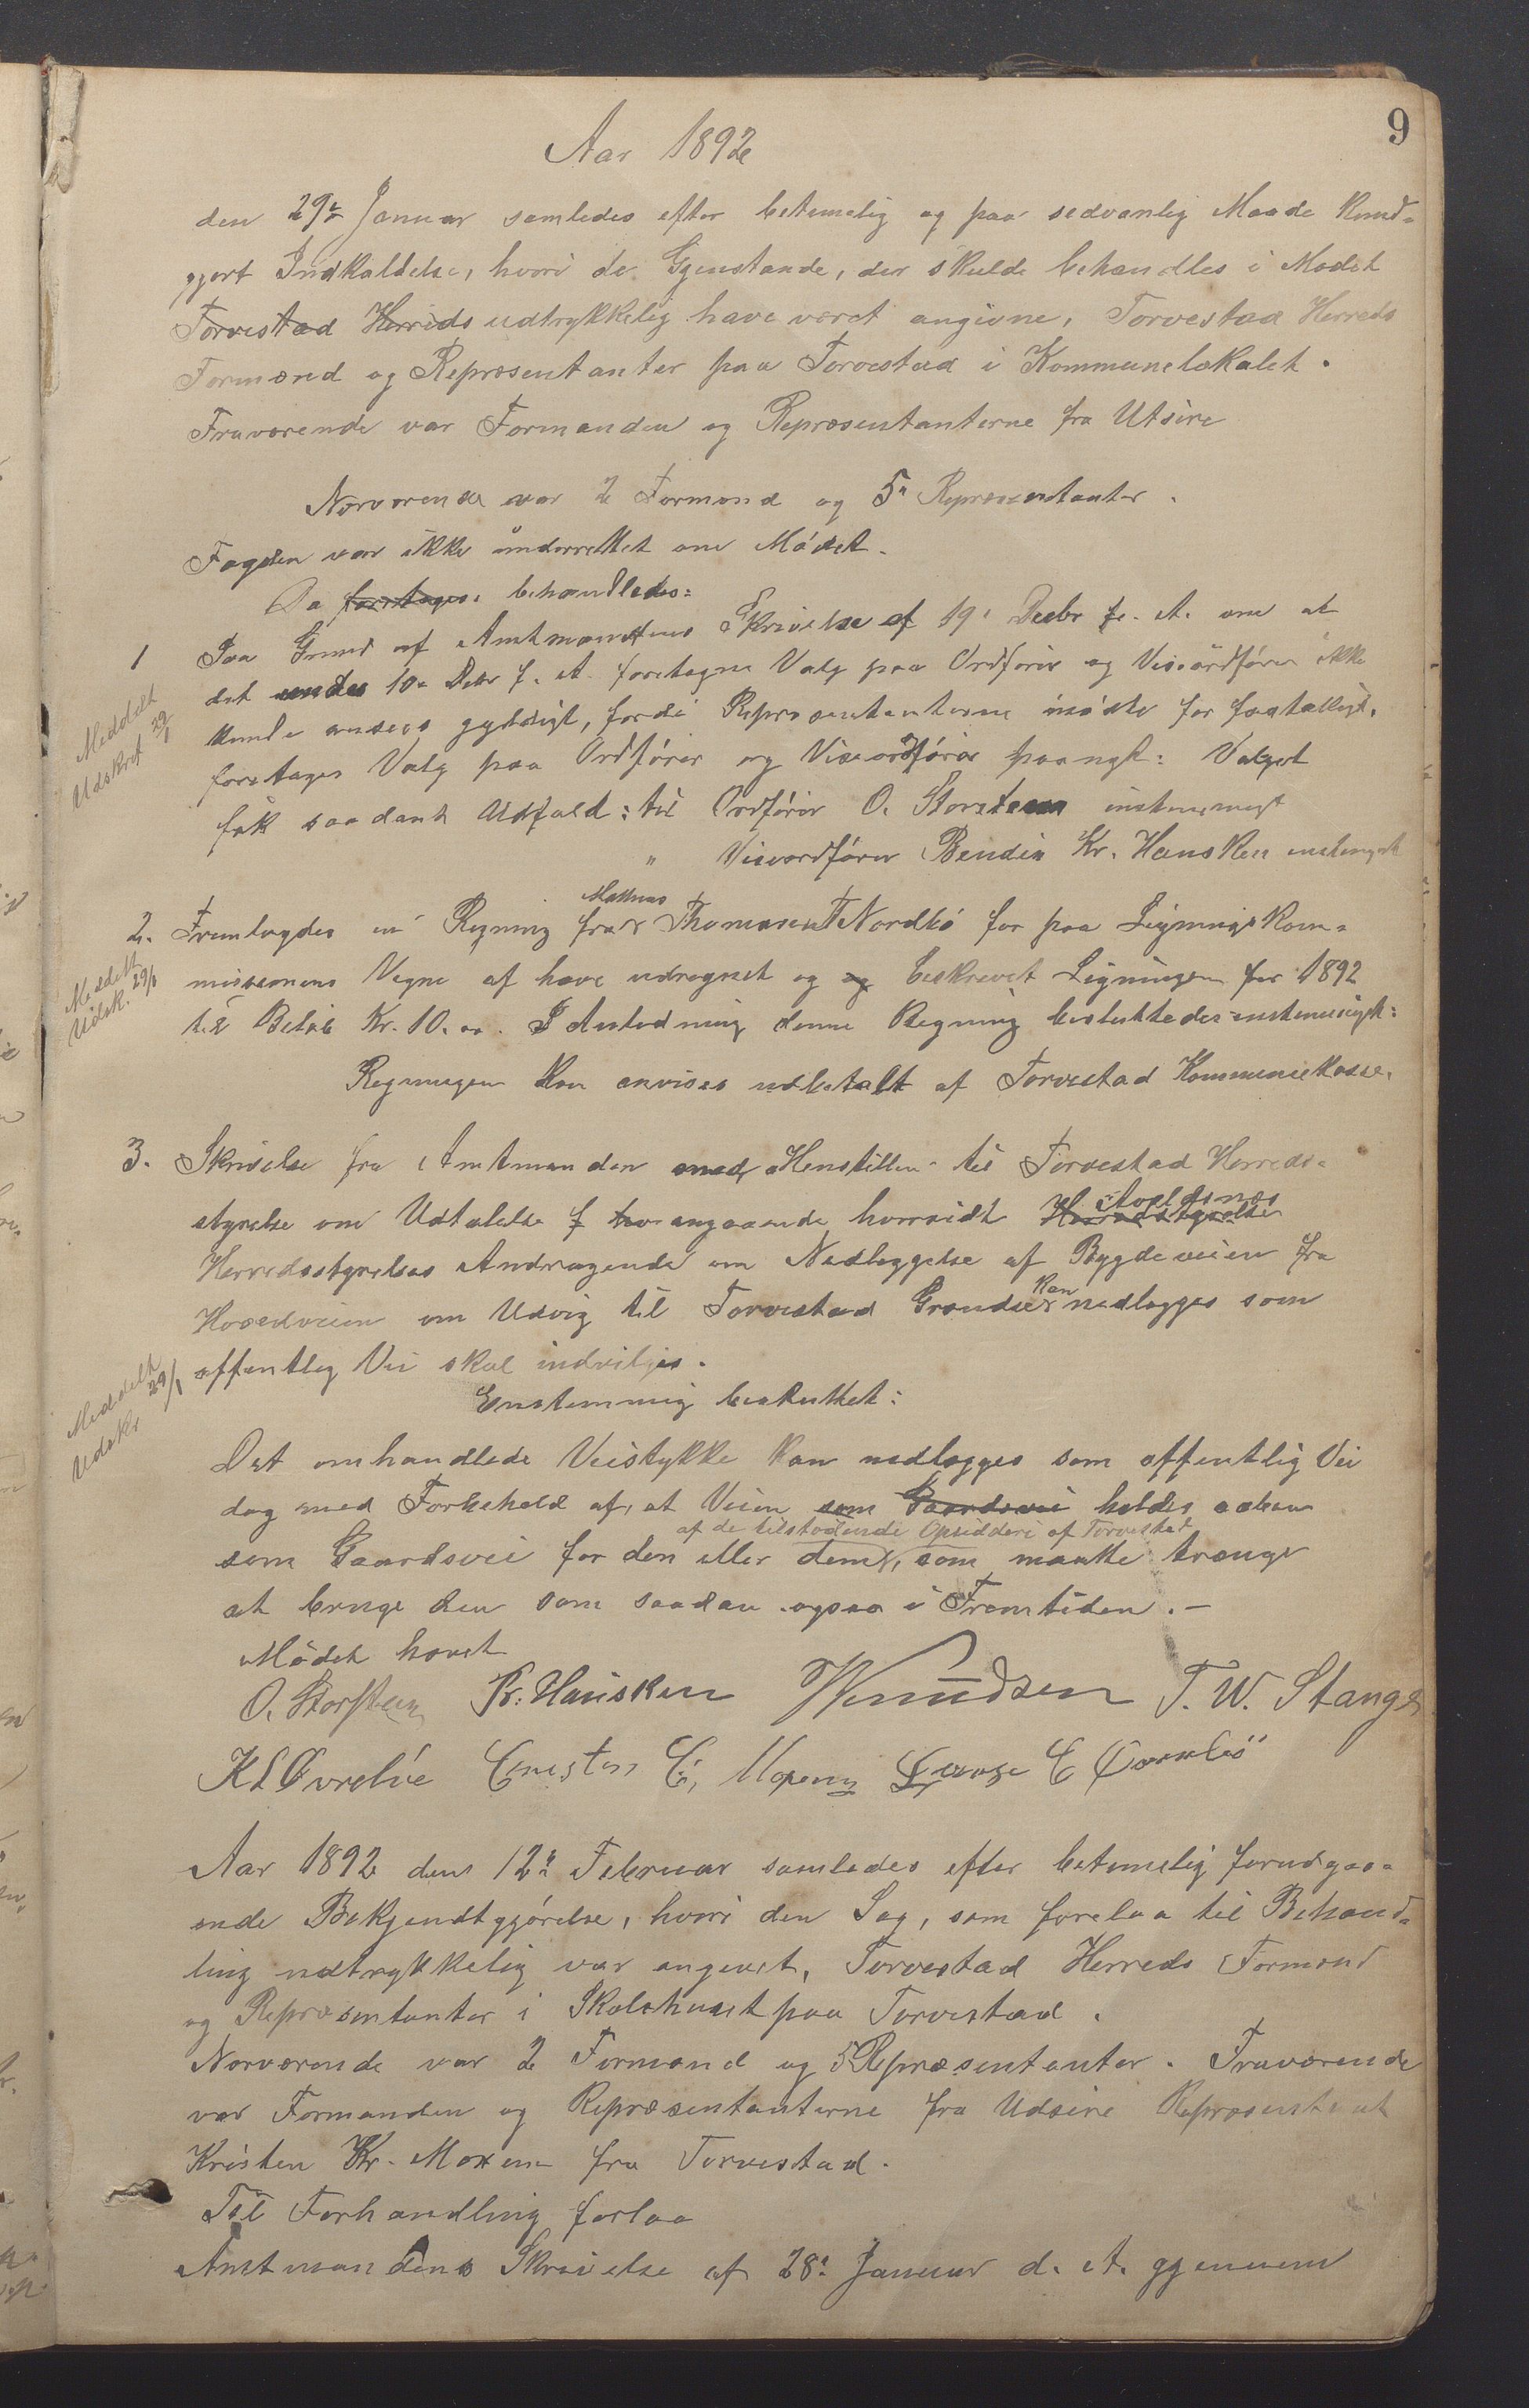 9
Aar 1892
den 29de Januar samledes efter betimelig og paa sedvanlig Maade kund-
gjort Indkaldelse, hvori de Gjenstande, der skulde behandles i Mødet
Torvestad Herreds udtrykkelig have været angivne, Torvestad Herreds
Formænd og Repræsentanter paa Torvestad i Kommunelokalet.
Fraværende var Formanden og Repræsentanterne fra Utsire
Nærværende var 2 Formænd og 5 Repræsentanter.
Fogden var ikke underrettet om Mødet.
Da foretoges: behandledes:
1 Paa Grund af Amtmandens Skrivelse af 19. Decbr f. A. om at
det under 10. Debr f. A. foretagne Valg paa Ordfører og Viseordfører ikke
kunde ansees gyldigt, fordi Repræsentanterne mødte for faatalligt,
foretages Valg paa Ordfører og Viseordfører paanyt: Valget
fik saadant Udfald: til Ordfører O. Storsteen enstemmigt
" Viseordfører Bendix Kr. Hausken enstemmigt
Meddelt
Udskrft 29/1
Mathias
2. Fremlagdes en Regning fra Thomasen Nordbø for paa Ligningskom-
missionens Vegne af have udregnet og og beskrevet Ligningen for 1892
til Beløb Kr. 10.00. I Anledning denne Regning besluttedes enstemmigt:
Regningen kan anvises udbetalt af Torvestad Kommunekasse.
Meddelt
Udsk. 29/1
3. Skrivelse fra Amtmanden med Henstillen til Torvestad Herreds-
styrelse om Udtalelse f hv angaaende hvorvidt Herredsstyrelse Skoldsnæs
Herredsstyrelses Andragende om Nedlæggelse af Bygdeveien fra
Hovedveien om Udvig til Torvestad Grændse kan nedlægges som
offentlig Vei skal indvilges.
Meddelt
Udskr 29/1
Enstemmig besluttet:
Det omhandlede Veistykke kan nedlægges som offentlig Vei
dog med Forbehold af, at Veien som Gaardsvei holdes aaben
af de tilstødende Opsiddere af Torvestad
som Gaardsvei for den eller dem, som maatte trænge
at bruge den som saadan ogsaa i Fremtiden.-
Mødet hævet
O. Storsteen Kr. Hausken W Knudsen T. W. Stange
K L Øvrebøe Cristen C. Moxeny Lause C
Aar 1892 den 12te Februar samledes efter betimelig forudgaa-
ende Bekjendtgjørelse, hvori den Sag, som forelaa til Behand-
ling udtrykkelig var angivet, Torvestad Herreds Formænd
og Repræsentanter i Skolehuset paa Torvestad.
Nærværende var 2 Formænd og 5 Repræsentanter. Fraværende
var Formanden og Repræsentanterne fra Udsire Repræsentant
Kristen Kr. Moxen fra Torvestad.
Til Forhandling forlaa
Amtmandens Skrivelse af 28. Januar d. A. gjennem